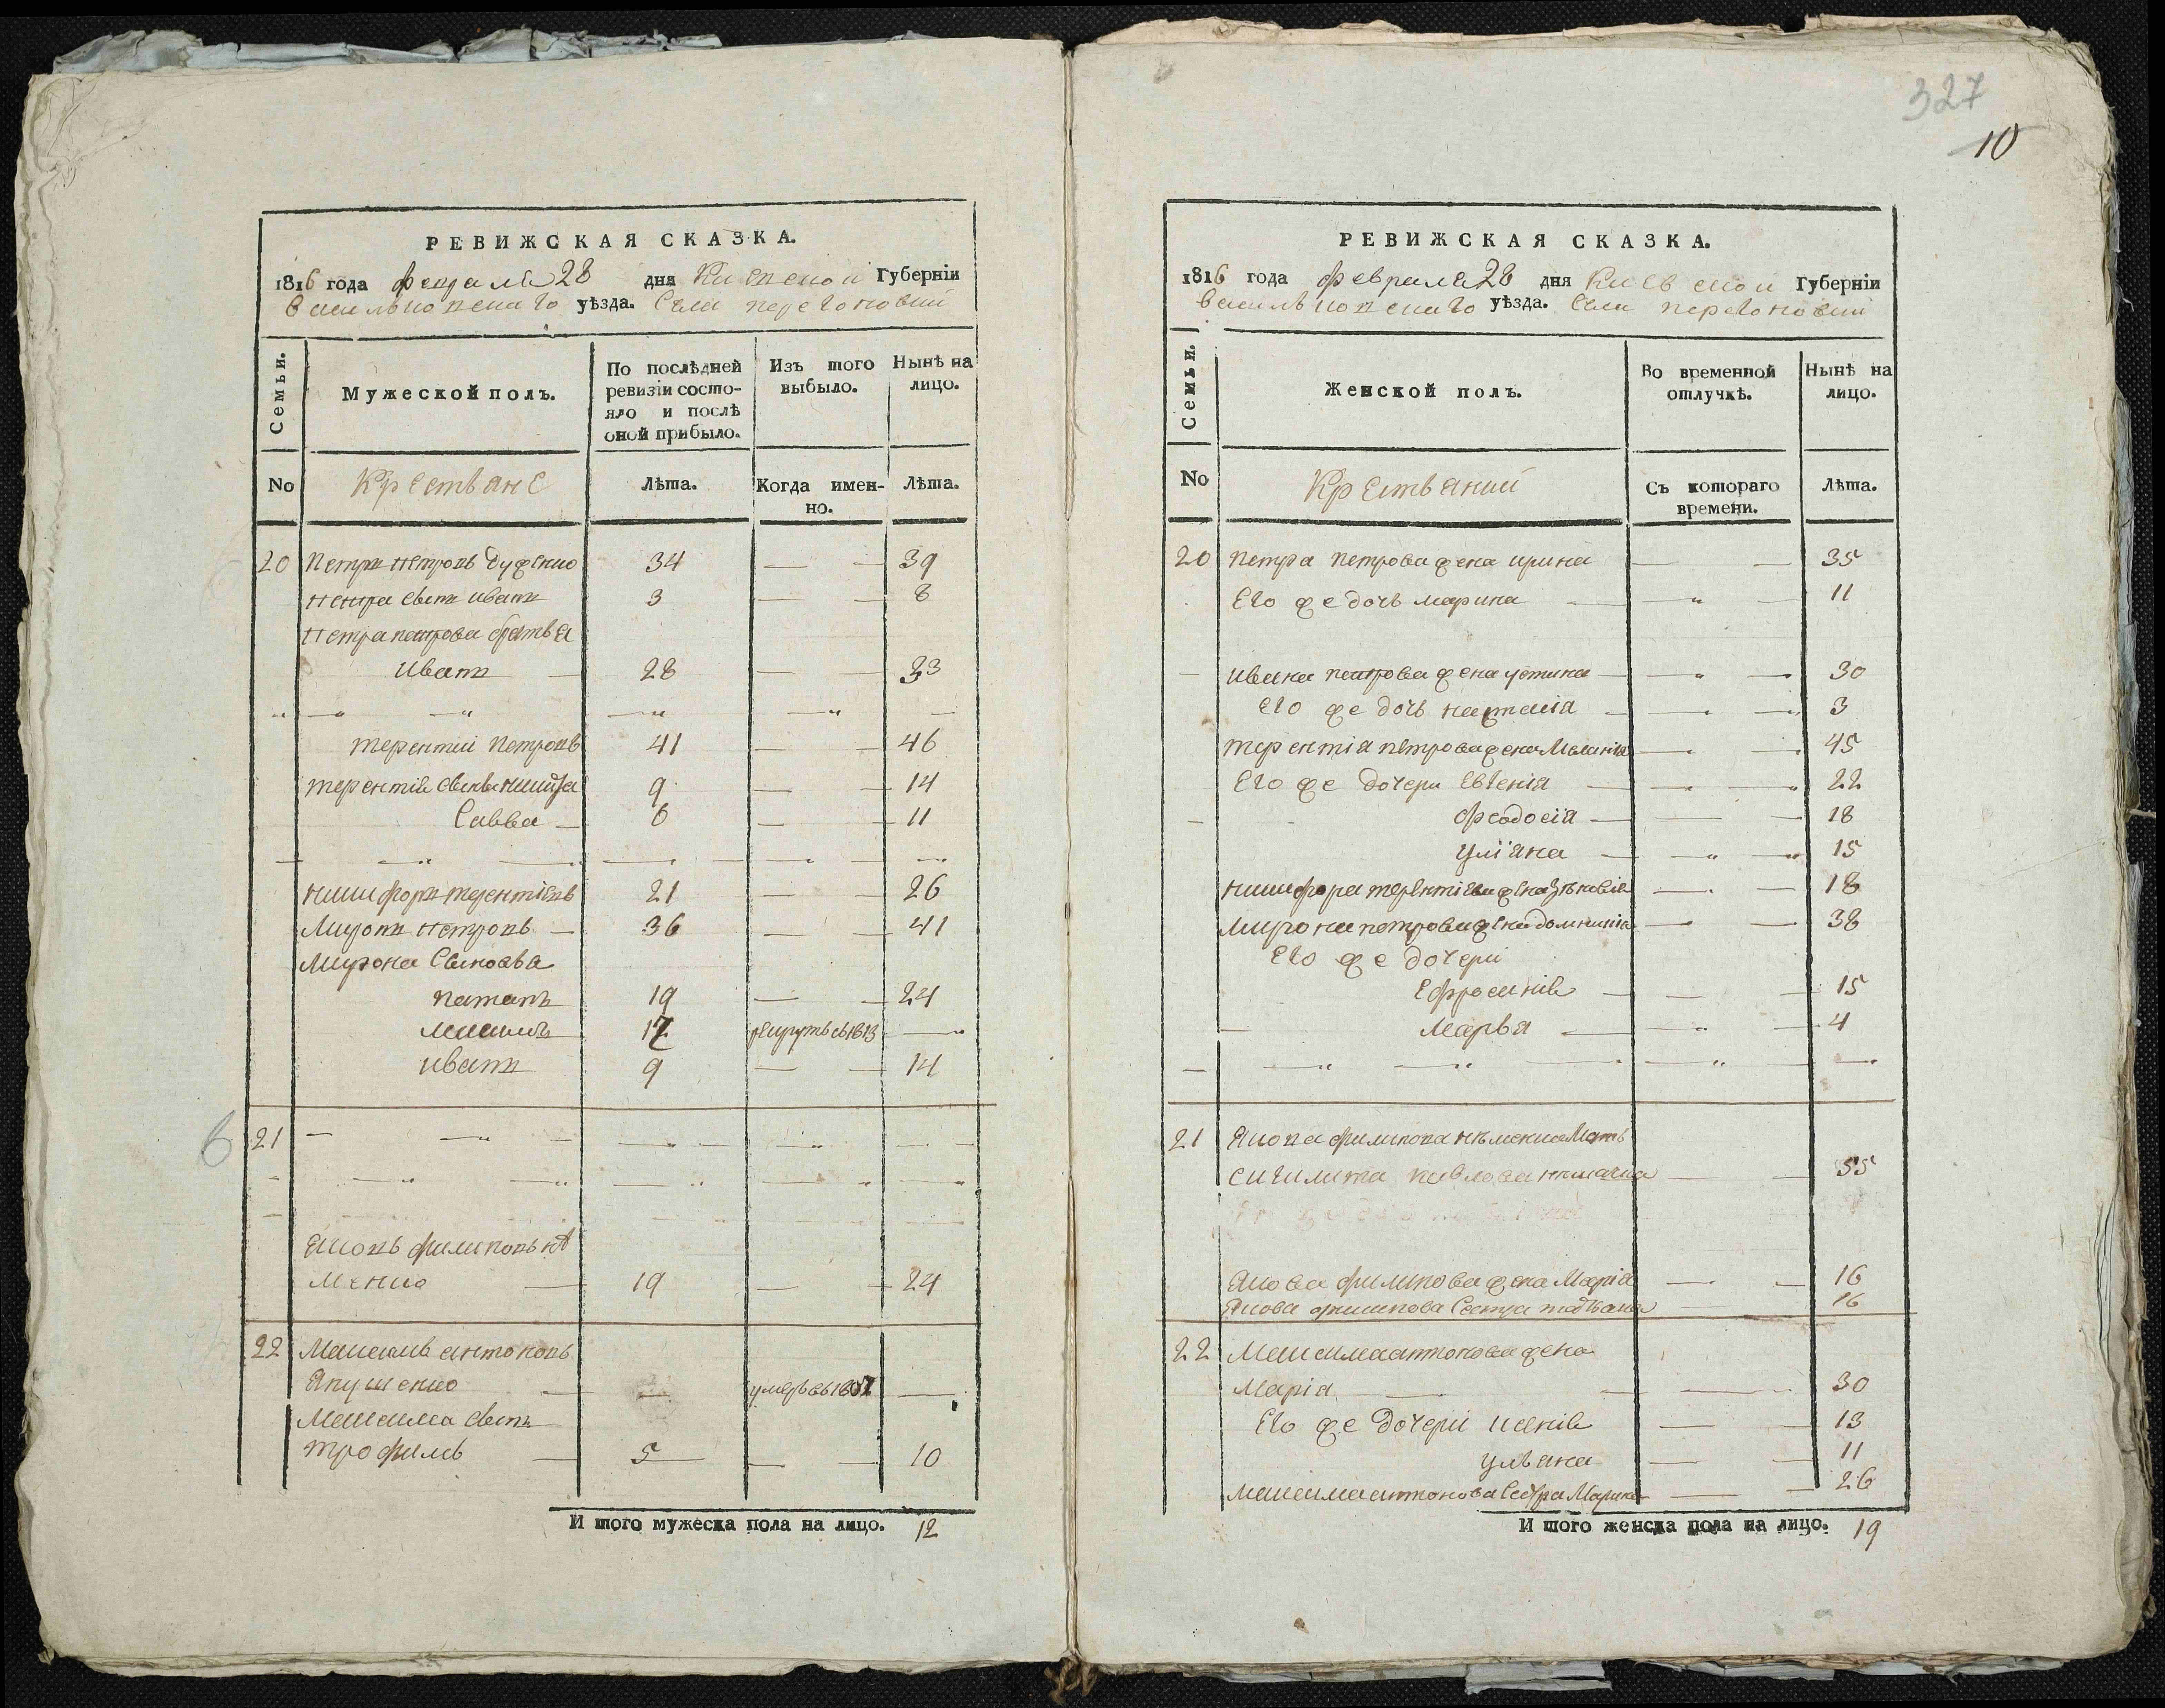 327
10
РЕВИЖСКАЯ СКАЗКА.
1816 года февраля 28 дня Киевской Губерніи
васильковскаго уѣзда. Села перегоновки
Семьи.
Мужеской полъ.
По послѣдней ревизіи состо-
яло и послѣ оной прибыло.
Изъ того выбыло.
Нынѣ на лицо.
No
Крестьяне
Лѣта.
Когда имен-
но.
Лѣта.
20 Петръ петровъ 34 — — 39
петра сынъ иванъ 3 — — 8
петра петрова братья
иванъ — 28 — — 33
терентий петровъ 41 — — 46
терентія сыны 9 — — 14
Савва — 6 — — 11
никифоръ терентіевъ 21 — — 26
Миронъ петровъ — 36 — — 41
Мирона Сыновья
патапъ 19 — — 24
17 рекрутъ съ 1813 —
иванъ 9 — — 14
6
21
Яковъ филиповъ нѣ
менко — 19 — — 24
22 Максимъ антоновъ
Якушенко — — умеръ въ 1807 —
Максима сынъ
трофимъ — 5 — — 10
И того мужеска пола на лицо. 12
РЕВИЖСКАЯ СКАЗКА.
1816 года февраля 28 дня Киевской Губерніи
васильковскаго уѣзда. Села перегоновки
Семьи.
Женской полъ.
Во временной отлучкѣ.
Нынѣ на лицо.
No
Крестьянки
Съ котораго времени.
Лѣта.
20 петра петрова жена ирина — — 35
Его же дочь марина — — 11
ивана петрова жена устина — — 30
его же дочь — — 3
терентія петрова жена Меланія — — 45
Его же дочери Евгенія — — 22
феодосія — — 18
уліяна — — 15
никифора терентіева жена — — 18
мирона петрова жена домникія — — 38
Его же дочери
Ефросинія — — 15
Марья — — 4
21 Якова филипова нѣменка Мать
55
Якова филипова жена Марія — — 16
Якова филипова Сестра татьяна 16
22 Максима антонова жена
Марія — — 30
Его же дочери — — 13
ульяна — — 11
максима антонова Сестра Марина — — 26
И того женска пола на лицо. 19